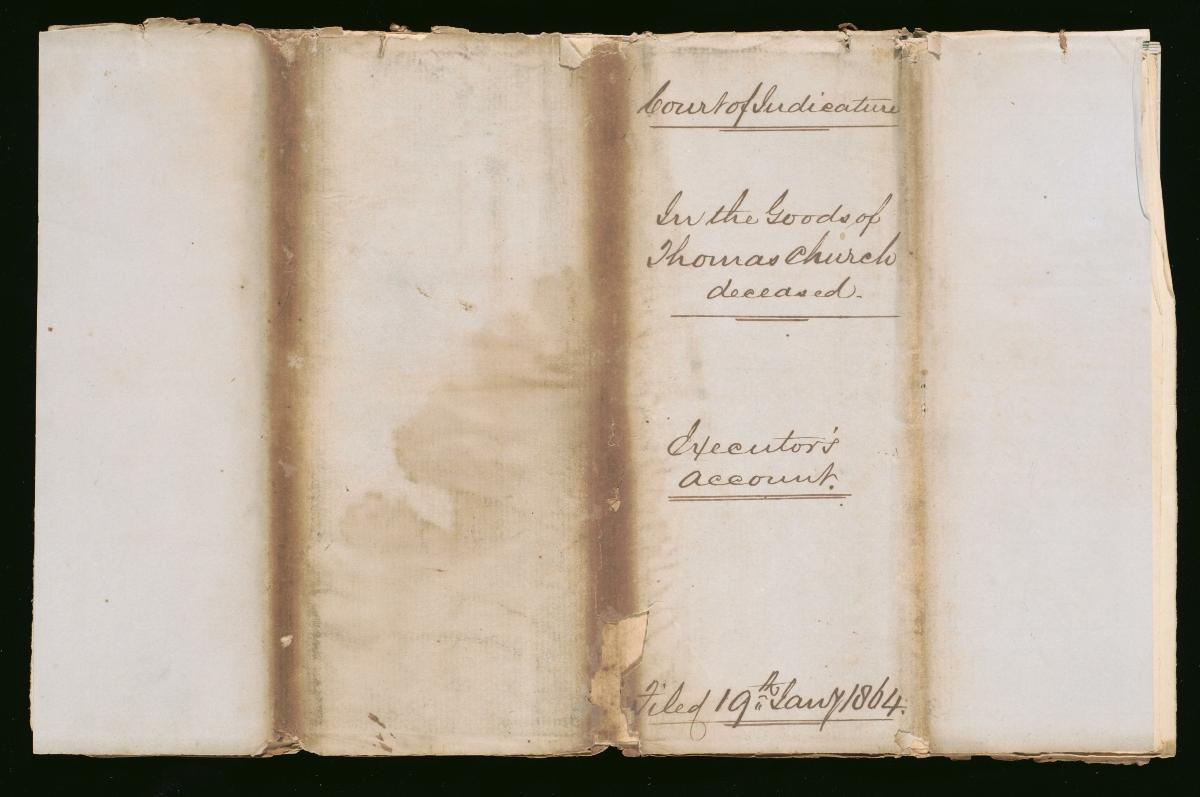 Court of Judicature
In the Goods of
Thomas Church
deceased.
Executor's
Account.
Filed 19th Jany 1864.